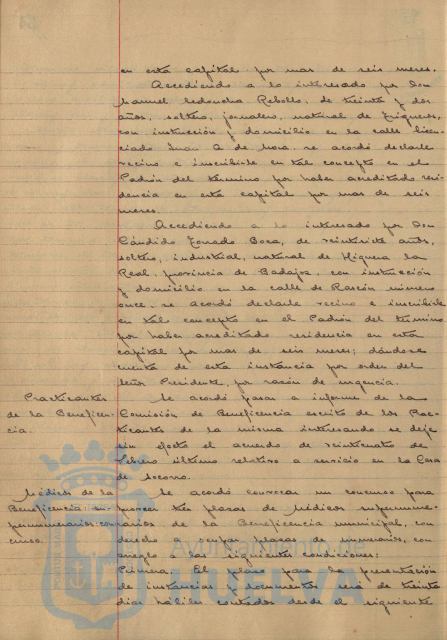 en esta capital por mas de seis meses.
Accediendo a lo interesado por Don
Manuel Redoncha Rebollo, de treinta y dos
años, soltero, jornalero, natural de Trigueros,
con instrucción y domicilio en la calle licen-
ciado Juan A de Mora, se acordó declararle
vecino e inscribirle en tal concepto en el
Padrón del término por haber acreditado resi-
dencia en esta capital por mas de seis
meses.
Accediendo a lo interesado por Don
Cándido Boza, de veintisiete años,
soltero, industrial, natural de Higuera la
Real, provincia de Badajoz, con instrucción
y domicilio en la calle de Rascón número
once, se acordó declararle vecino e inscribirle
en tal concepto en el Padrón del término
por haber acreditado residencia en esta
capital por mas de seis meses; dándose
cuenta de esta instancia por orden del
Señor Presidente, por razón de urgencia.
Practicantes
de la Beneficen-
cia.
Se acordó pasar a informe de la
Comisión de Beneficencia escrito de los Prac-
ticantes de la misma interesando se deje
sin efecto el acuerdo de veinticuatro de
Febrero último relativo a servicio en la Casa
de Socorro.
Médicos de la
Beneficencia su-
pernumerarios: con-
curso.
Se acordó convocar un concurso para
proveer tres plazas de médicos supernume-
rarios de la Beneficencia municipal, con
derecho a ocupar plazas de numerarios, con
arreglo a las siguientes condiciones:
Primera: El plazo para la presentación
de instancias y documentos será de treinta
días hábiles contados desde el siguiente
HUELVA